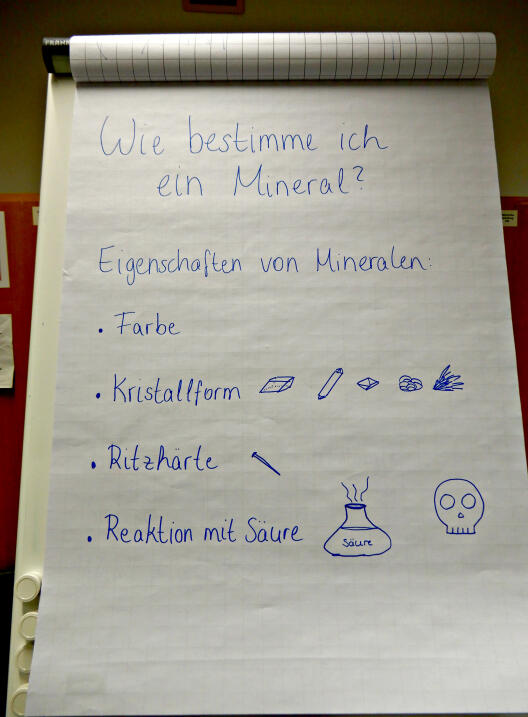 Wie bestimme ich
ein Mineral?
Eigenschaften von Mineralen:
• Farbe
• Kristallform
• Ritzhärte
• Reaktion mit Säure
Säure